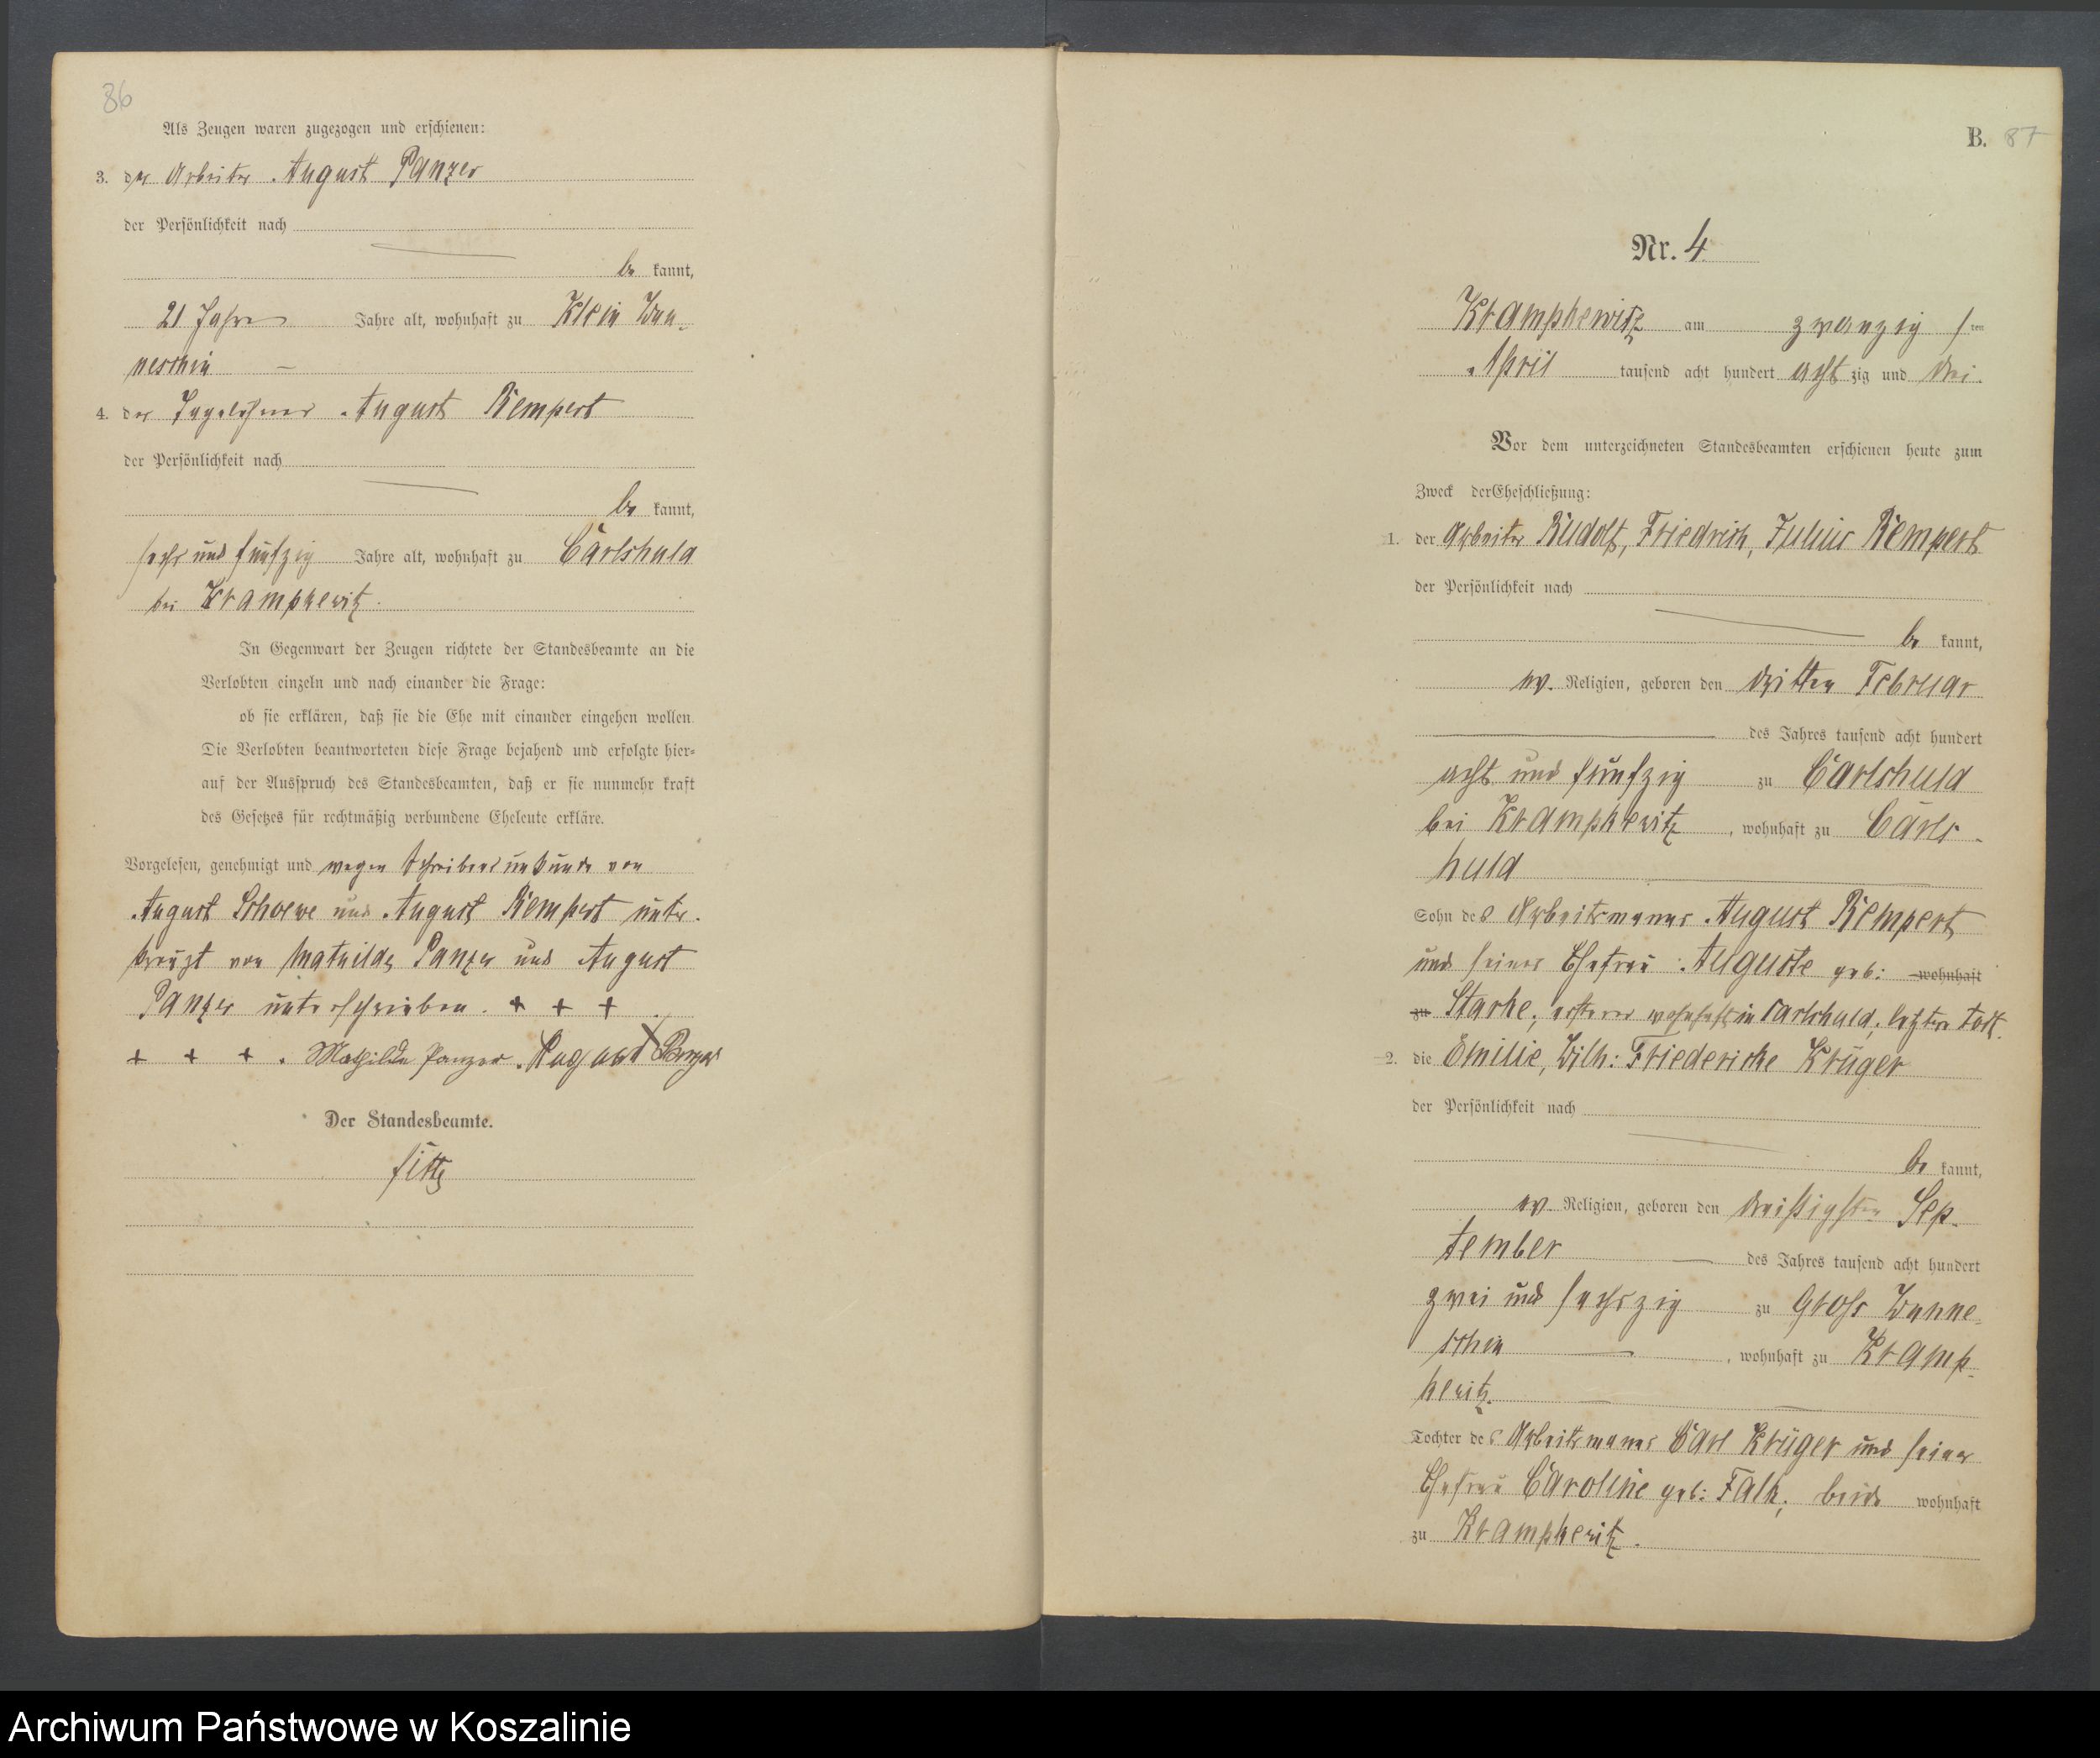 86
Als Zeugen waren zugezogen und erschienen:
3. der Arbeiter August Panzer
der Persönlichkeit nach
be kannt,
21 Jahre Jahre alt, wohnhaft zu Klein Wun-
neschin
4. der Tagelöhner August Rempert
der Persönlichkeit nach
be kannt,
sechs und fünfzig Jahre alt, wohnhaft zu Carlshuld
bei Krampkewitz.
In Gegenwart der Zeugen richtete der Standesbeamte an die
Verlobten einzeln und nach einander die Frage:
ob sie erklären, daß sie die Ehe mit einander eingehen wollen
Die Verlobten beantworteten diese Frage bejahend und erfolgte hier-
auf der Ausspruch des Standesbeamten, daß er sie nunmehr kraft
des Gesetzes für rechtmäßig verbundene Eheleute erkläre.
Vorgelesen, genehmigt und wegen Schreibensunkunde von
August Schoewe und August Rempert unter-
kreuzt von Mathilde Panzer und August
Panzer unterschrieben. + + +
+ + +. Mathilde Panzer. August Panzer
Der Standesbeamte.
B. 87
Nr. 4
Krampkewitz am zwanzig sten
April tausend acht hundert acht zig und drei.
Vor dem unterzeichneten Standesbeamten erschienen heute zum
Zweck der Eheschließung:
1. der Arbeiter Rudolf, Friedrich, Julius Rempert
der Persönlichkeit nach
be kannt,
ev. Religion, geboren den dritten Februar
des Jahres tausend acht hundert
acht und fünfzig zu Carlshuld
bei Krampkewitz, wohnhaft zu Carls-
huld
Sohn des Arbeitsmanns August Rempert
und seiner Ehefrau Auguste geb: wohnhaft
zu Starke, ersterer wohnhaft in Carlshuld, letztere todt.
2. die Emilie, Wilh: Friedericke Krüger
der Persönlichkeit nach
be kannt,
ev. Religion, geboren den dreißigsten Sep-
tember des Jahres tausend acht hundert
zwei und sechszig zu Gross Wunne-
schin, wohnhaft zu Kramp-
kewitz.
Tochter des Arbeitsmanns Carl Krüger und seiner
Ehefrau Caroline geb: Falk, beide wohnhaft
zu Krampkewitz.
Archiwum Państwowe w Koszalinie